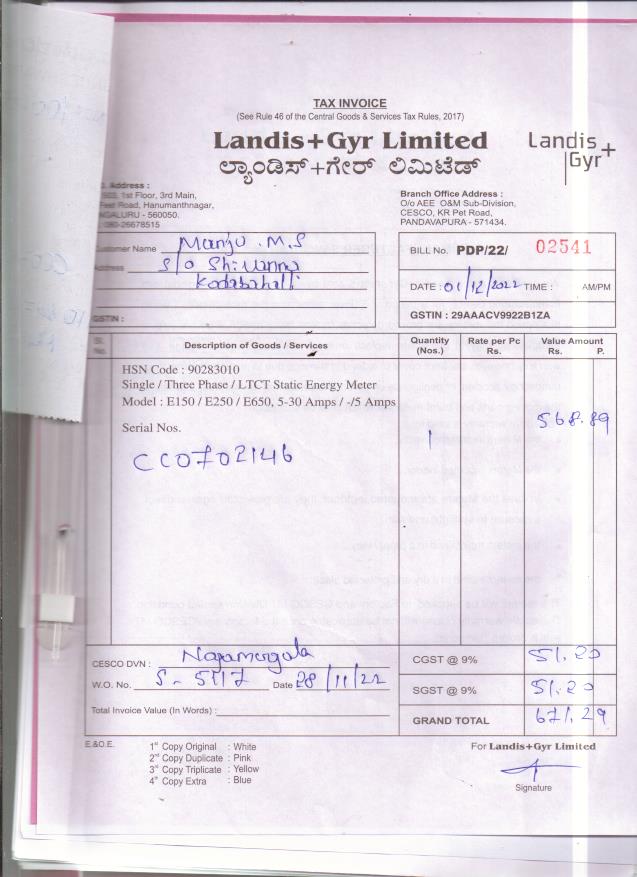 TAX INVOICE
(See Rule 46 of the Central Goods & Services Tax Rules, 2017)
Landis+Gyr Limited
ಲ್ಯಾಂಡಿಸ್+ಗೇರ್ ಲಿಮಿಟೆಡ್
Landis+
Gyr
Address :
1st Floor, 3rd Main,
Road, Hanumanthnagar,
- 560050.
080-26678515
Branch Office Address :
O/o AEE O&M Sub-Division,
CESCO, KR Pet Road,
PANDAVAPURA - 571434.
Customer Name Manju .M.S
Address S/o Shivanna
Kodabahalli
GSTIN :
BILL No. PDP/22/ 02541
DATE : 01/12/2022 TIME : AM/PM
GSTIN : 29AAACV9922B1ZA
Sl. No. Description of Goods / Services Quantity (Nos.) Rate per Pc Rs. Value Amount Rs. P.
HSN Code : 90283010
Single / Three Phase / LTCT Static Energy Meter
Model : E150 / E250 / E650, 5-30 Amps / -/5 Amps
Serial Nos. 1 568.89
CC0702146
CESCO DVN : Nagamangala
W.O. No. S-5117 Date 28/11/22
Total Invoice Value (In Words) :
CGST @ 9% 51.20
SGST @ 9% 51.20
GRAND TOTAL 671.29
E.&O.E.
1st Copy Original : White
2nd Copy Duplicate : Pink
3rd Copy Triplicate : Yellow
4th Copy Extra : Blue
For Landis+Gyr Limited
Signature